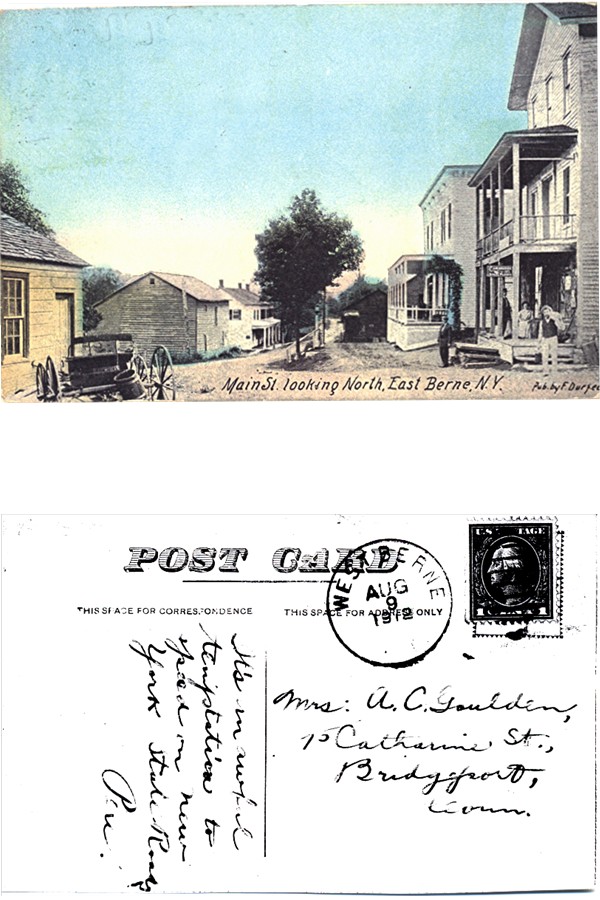 Main St. looking North, East Berne, N.Y.
Pub. by F. Durfee
POST CARD
THIS SPACE FOR CORRESPONDENCE
THIS SPACE FOR ADDRESS ONLY
WEST BERNE
AUG
9
1912
U.S. POSTAGE
It's an awful
temptation to
speed on new
York State Roads
Mrs. A. C. Goulden,
75 Catharine St.,
Bridgeport,
Conn.